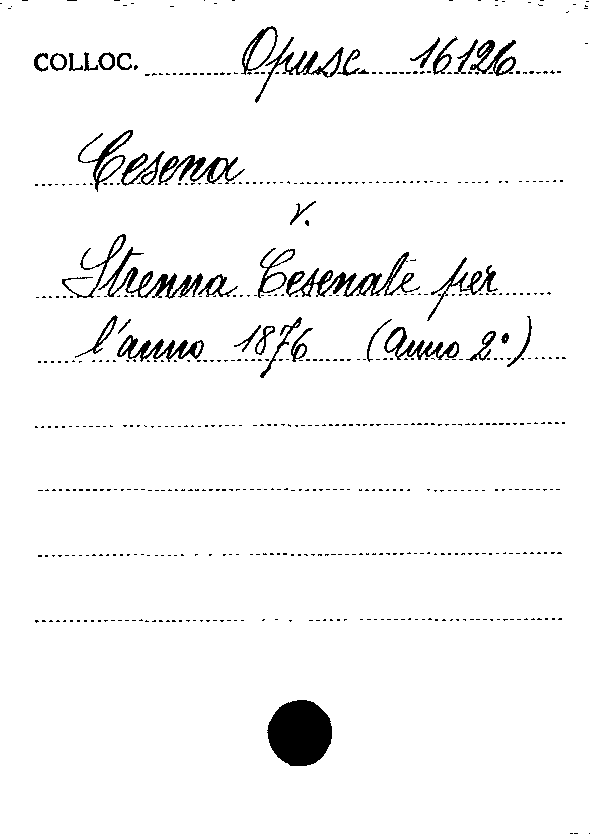 COLLOC. Opusc. 16126
Cesena
v.
Strenna Cesenate per
l'anno 1876 (Anno 2°)